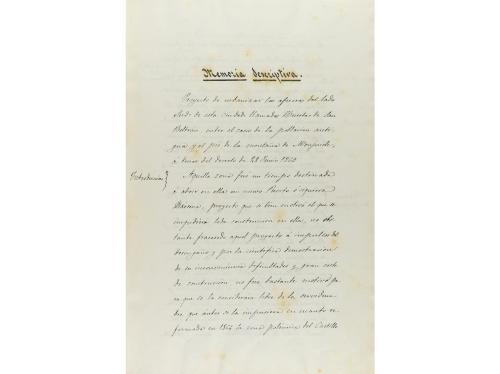 Memoria descriptiva.
Proyecto de urbanizar las afueras del lado
Sud de esta ciudad llamadas Huertas de San
Beltran entre el casco de la poblacion anti-
gua y el pié de la montaña de Monjuich,
á tenor del decreto de 28 Junio 1862
Introduccion
Aquella zona fué un tiempo destinada
á abrir en ella un nuevo Puerto ó
Darsena, proyecto que si bien motivó el que se
impidiera toda construccion en ella, no obs-
tante fracasado aquel proyecto á impulsos del
desengaño y por la cientifica demostracion
de su inconveniencia dificultades y gran coste
de construccion no fué bastante motivo pa-
ra que se la considerara libre de la servidum-
bre que antes se la impusiera en cuanto re-
formada en la zona polemica del Castillo